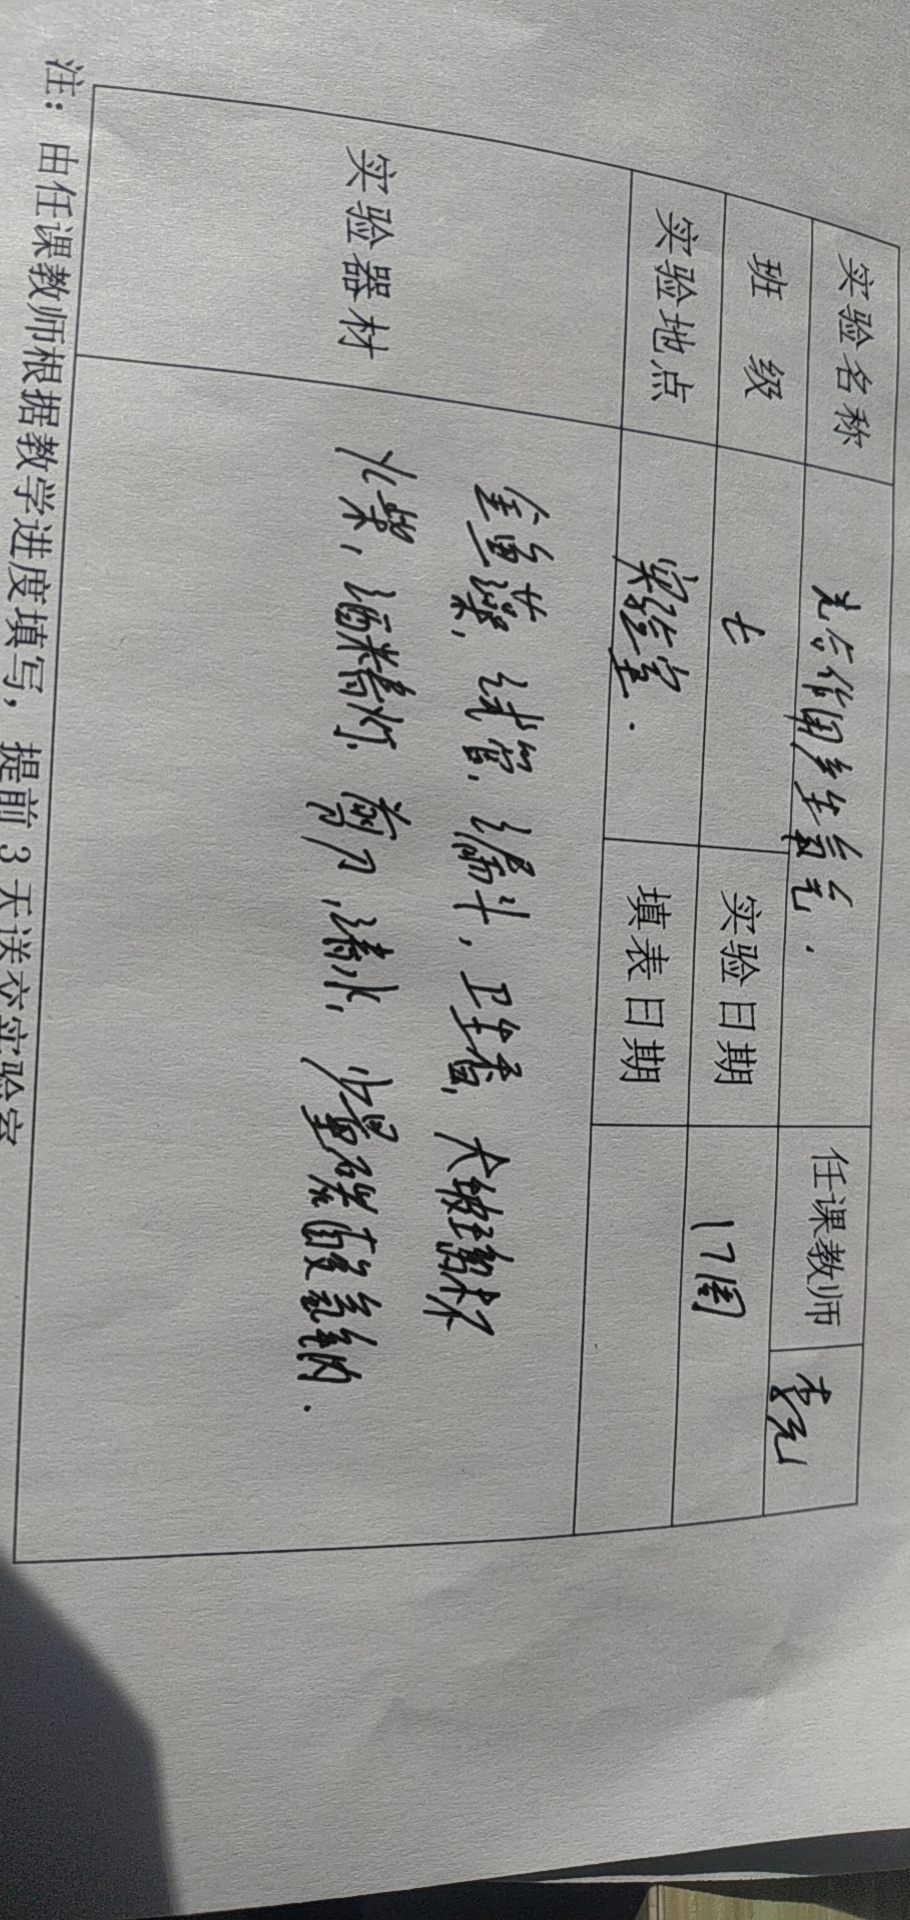 实验名称 光合作用产生氧气. 任课教师
班 级 七 实验日期 17周
实验地点 实验室. 填表日期
实验器材
金鱼藻, 试管, 漏斗, 卫生香, 大玻璃杯
火柴, 酒精灯, 剪刀, 清水, 少量碳酸氢钠.
注: 由任课教师根据教学进度填写, 提前 3 天送交实验室